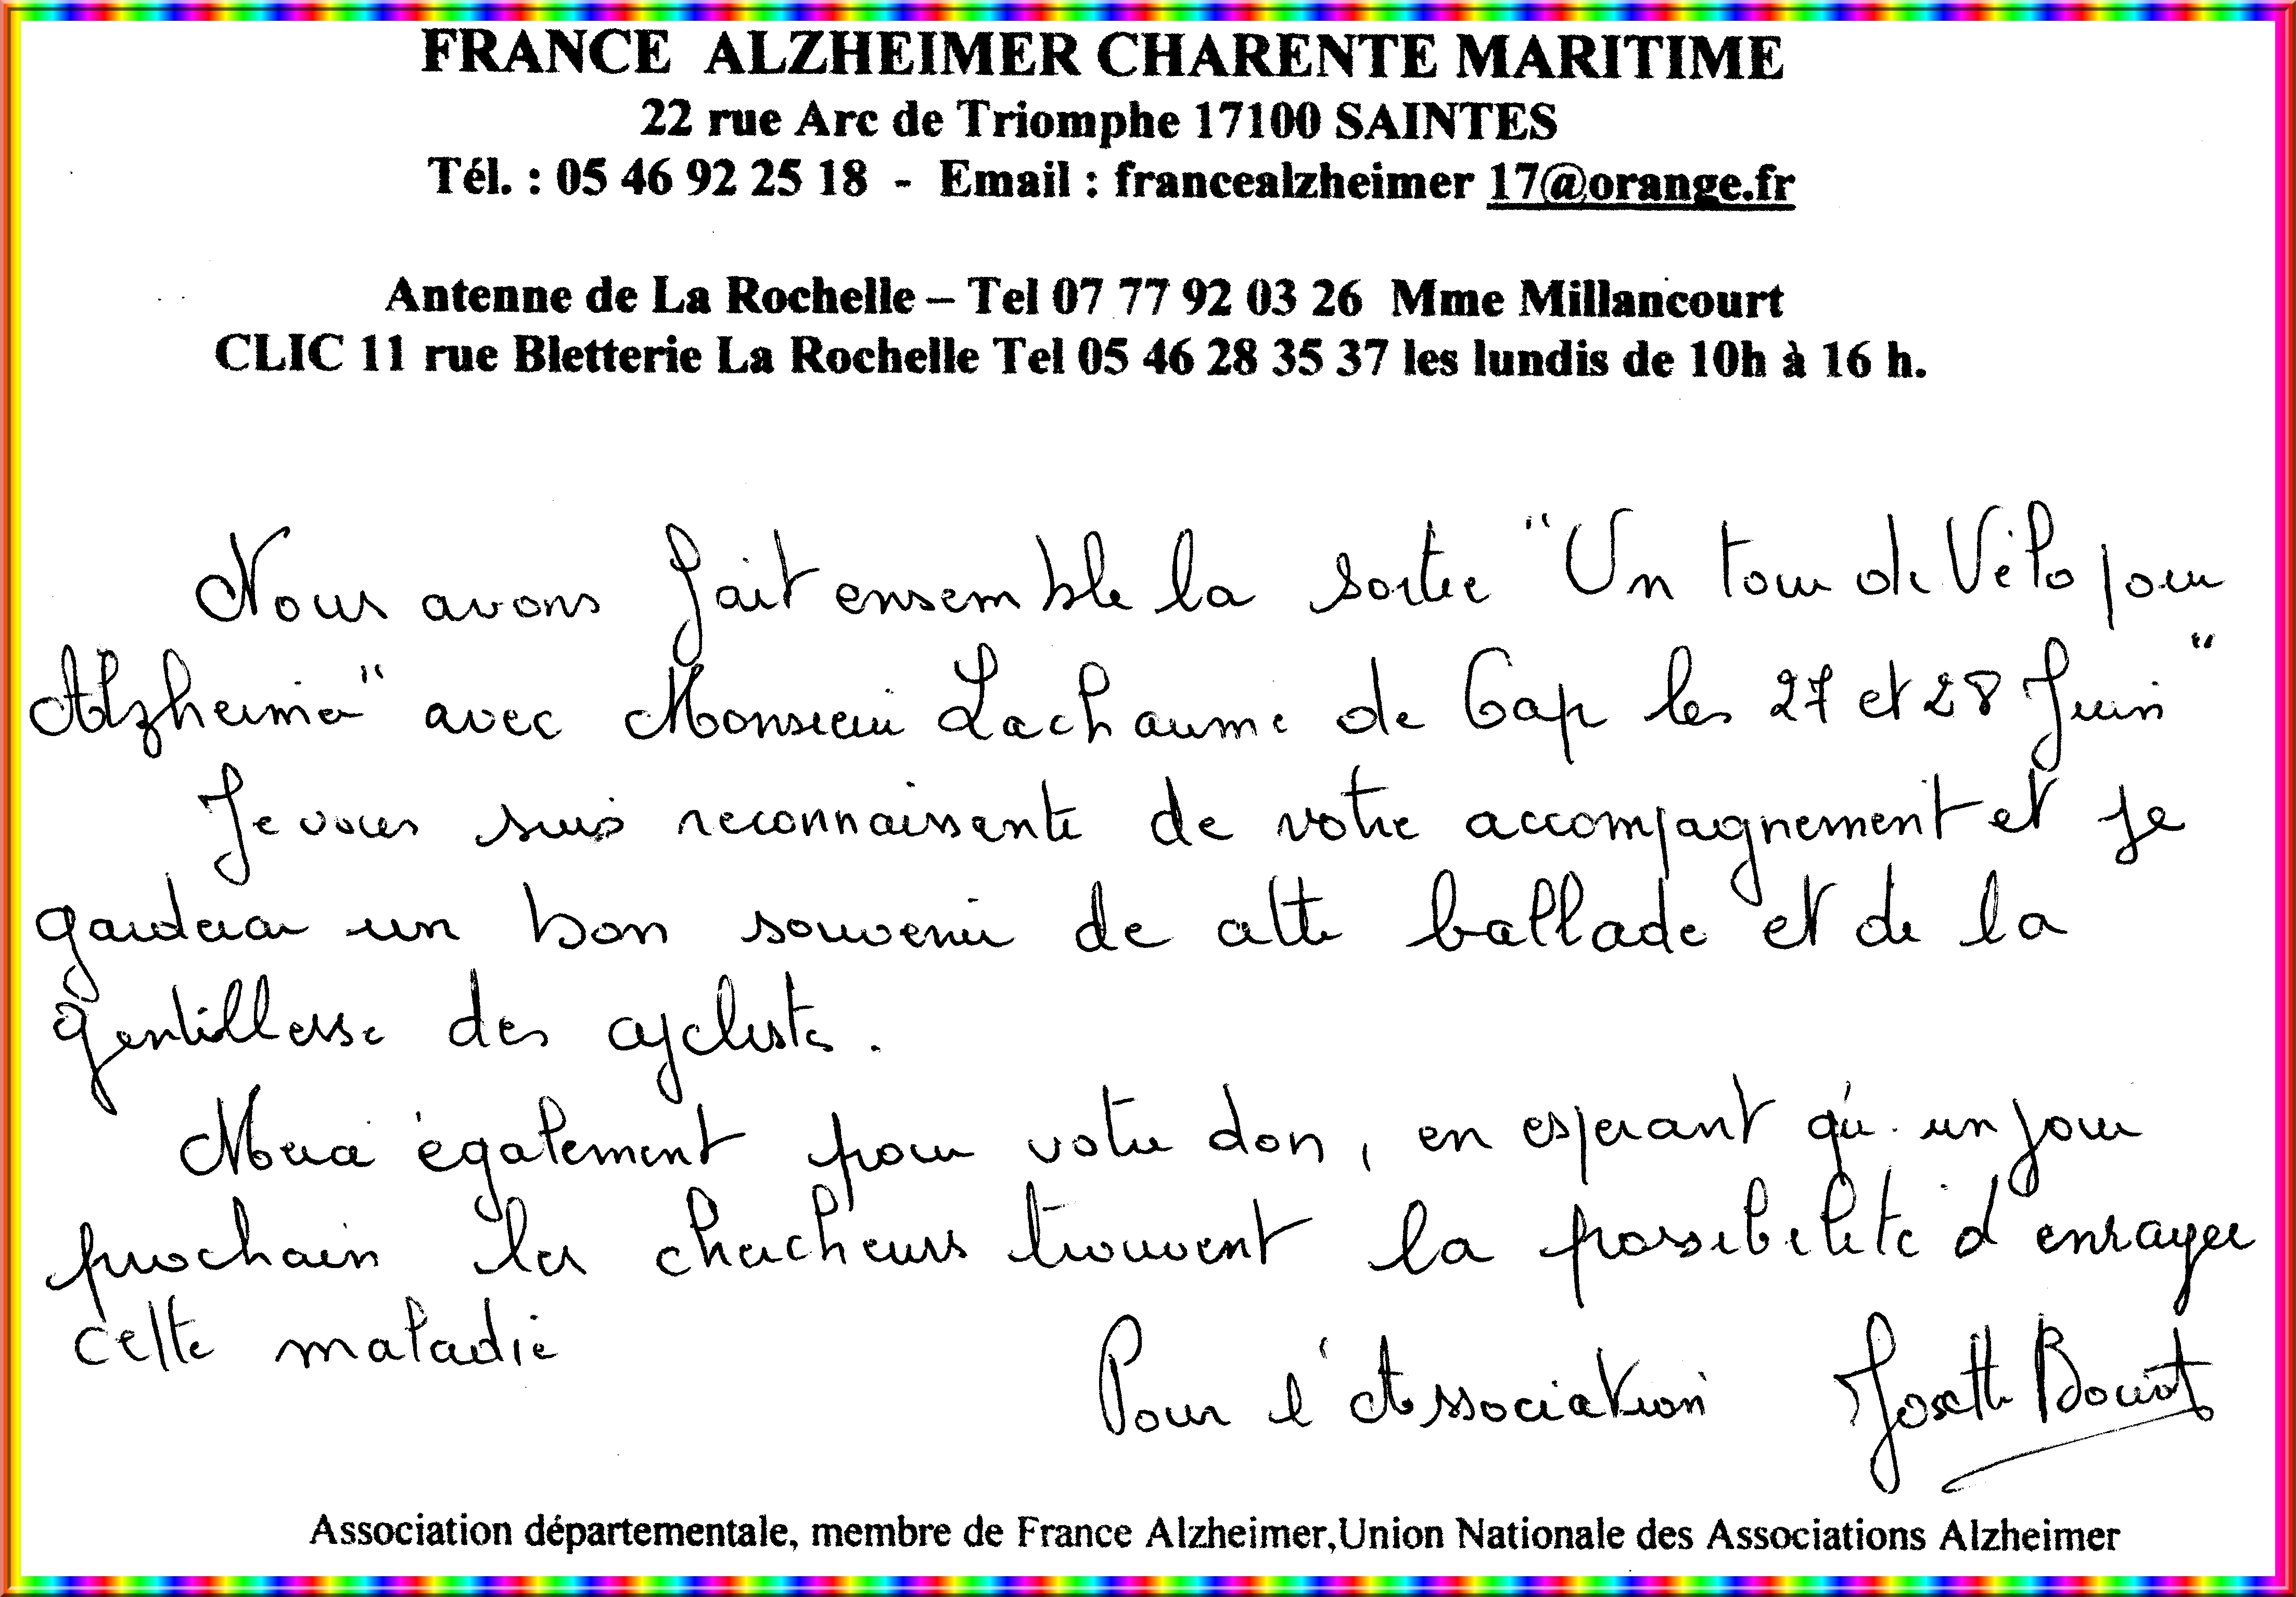 FRANCE ALZHEIMER CHARENTE MARITIME
22 rue Arc de Triomphe 17100 SAINTES
Tél. : 05 46 92 25 18 - Email : francealzheimer 17@orange.fr
Antenne de La Rochelle – Tel 07 77 92 03 26 Mme Millancourt
CLIC 11 rue Bletterie La Rochelle Tel 05 46 28 35 37 les lundis de 10h à 16 h.
Nous avons fait ensemble la sortie "Un tour de Vélo pour
Alzheimer" avec Monsieur Lachaume de Gap les 27 et 28 Juin"
Je vous suis reconnaissante de votre accompagnement et je
garderai un bon souvenir de cette ballade et de la
gentillesse des cyclistes.
Merci également pour votre don, en esperant qu'un jour
prochain les chercheurs trouvent la possibilité d'enrayer
cette maladie
Pour l'Association Josette
Association départementale, membre de France Alzheimer,Union Nationale des Associations Alzheimer